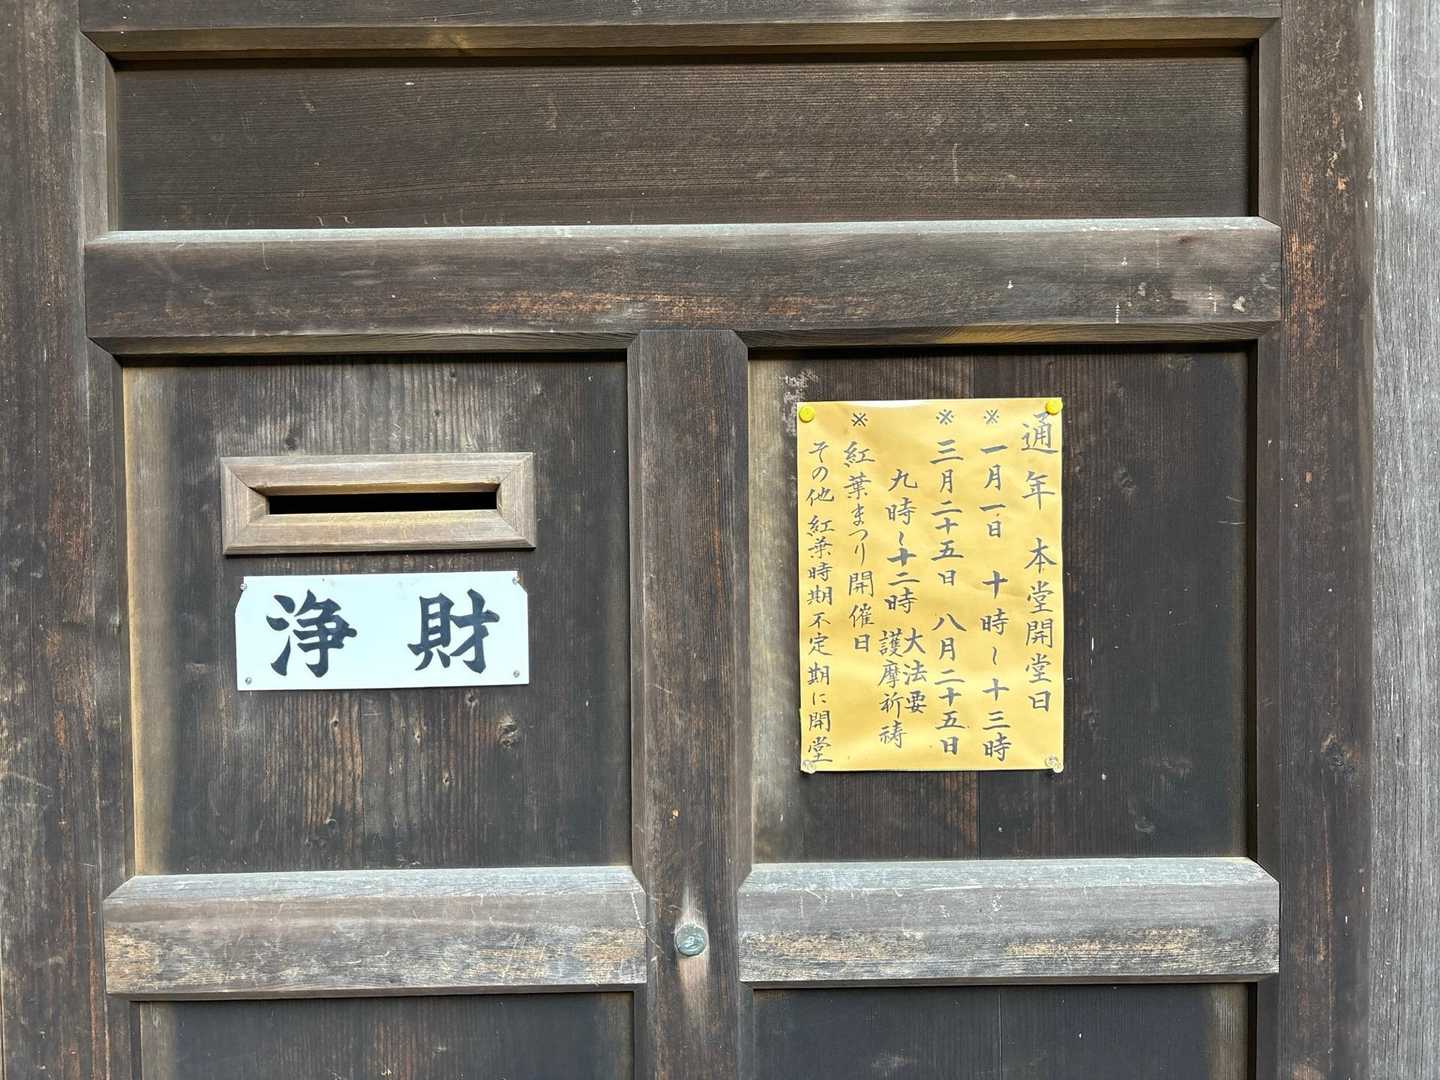 浄財
通年 本堂開堂日
※一月一日 十時〜十三時
※三月二十五日 八月二十五日
九時〜十二時 大法要
護摩祈祷
※紅葉まつり開催日
その他紅葉時期不定期に開堂